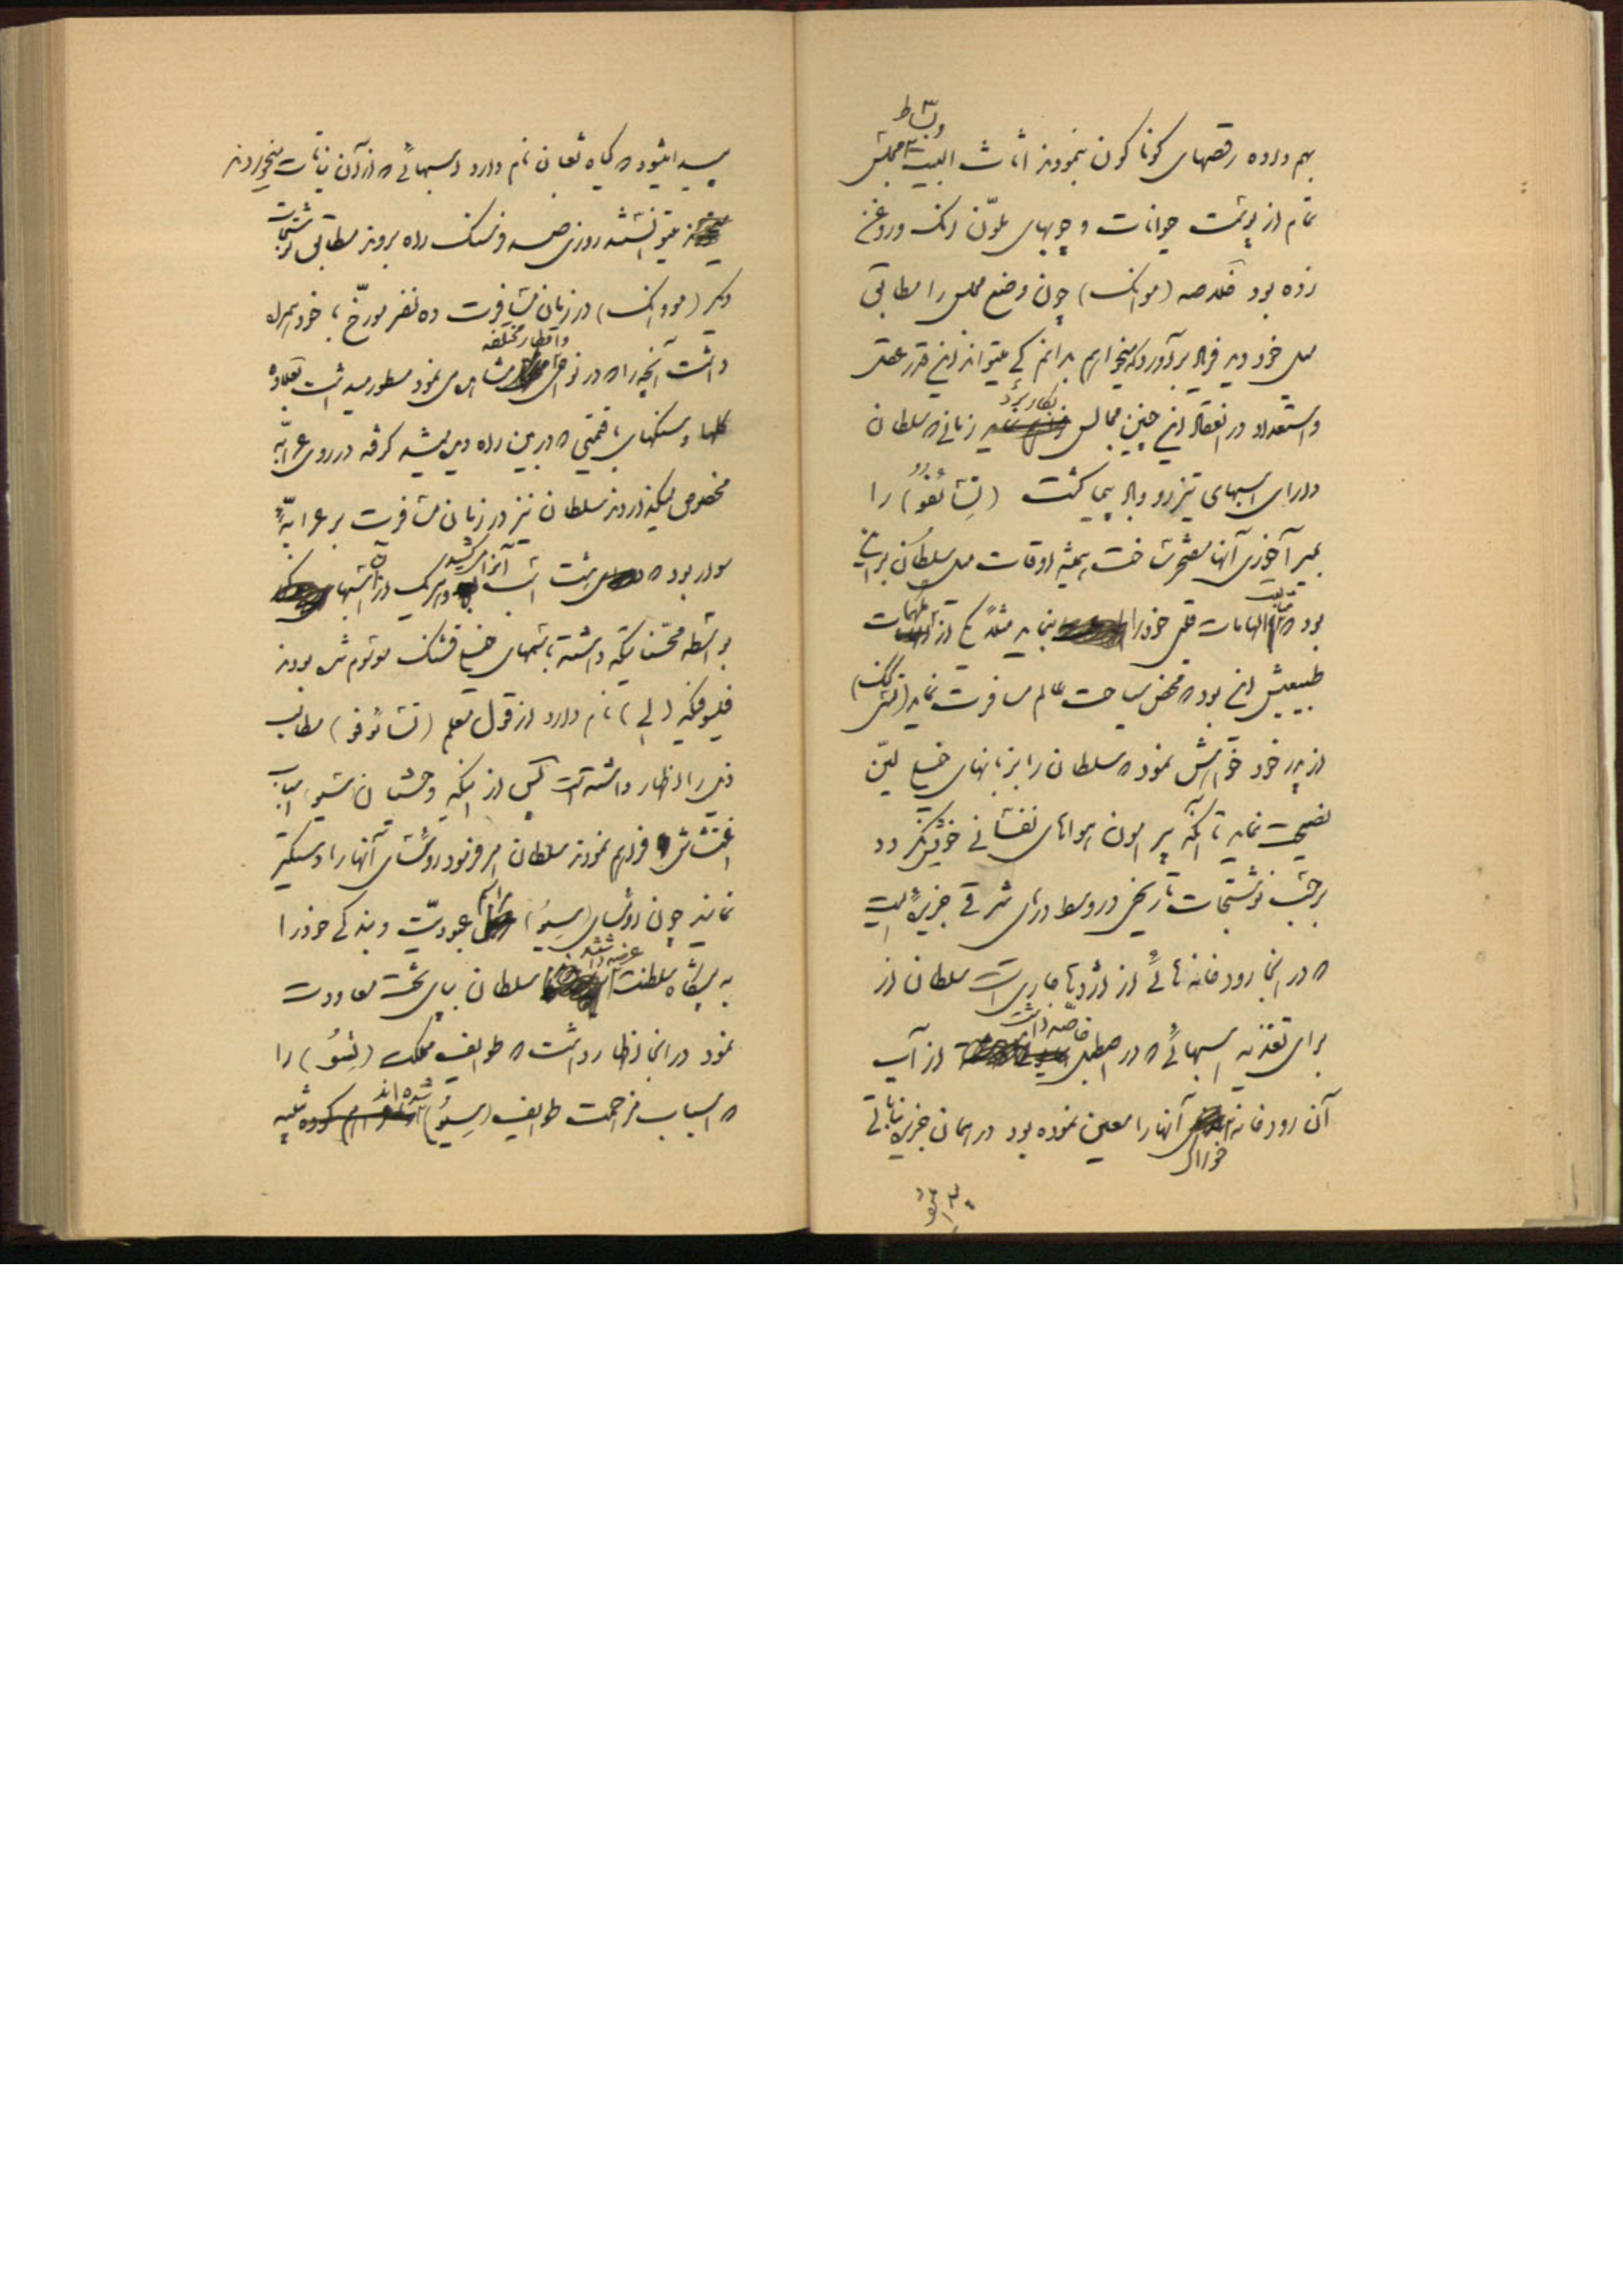 بهم داده رقصهای کوناکون مینمودند اثاث البیت مجلس
و بساط
تمام از پوست حیوانات و چوبهای ملوّن رنک و روغن
زده بود خلاصه (موانک) چون وضع مجلس را مطابق
میل خود دید فریاد برآورد که میخواهم بدانم کی میتواند این قدر عقل
و استعداد در انعقاد این چنین مجالس بکار برد زمانی که سلطان
دارای اسبهای تیزرو و باد پیما کشت (تشائوفو) را
بمیر آخوری آنها مفتخر ساخت همیشه اوقات میل سلطان براین
بود که متابعت الهامات قلبی خود را بنماید مثلاً یکی از الهامات
طبیعیش این بود که محض سیاحت عالم مسافرت نماید (تشی کنک)
از پدر خود خواهش نمود که سلطان را بزبانهای خیلی لیّن
نصیحت نماید تا آنکه پیرامون هواهای نفسانی خویش نکردد
برحسب نوشتجات تاریخی در وسط دریای شرقی جزیرهٔ ایست
که در انجا رودخانه هائی از اژدها جاری است سلطان از
برای تغذیه اسبهائی که در اصطبل خاصّه داشت از آب
آن رودخانه خوراک آنها را معین نموده بود در همان جزیره نباتی
پیدا میشود که کیاه ثعبان نام دارد اسبهائی که از آن نباتات میخوردند
میتوانستند روزی صد فرسنک راه بروند مطابق نوشتجات
دیکر (مووانک) در زمان مسافرت ده نفر مورّخ با خود همراه
داشت آنچه را که در نواحی و اقطار مختلفه مشاهده می نمود مسطور میداشت بعلاوه
کلها و سنکهای با قیمتی که در بین راه دیده میشد کرفته در روی عرابهٔ
مخصوص میکذاردند سلطان نیز در زمان مسافرت بر عرابهٔ
سوار بود که هشت اسب آنرا میکشید و هر یک از آن اسبها
بواسطه محسّناتیکه داشتند باسمهای خیلی قشنک موسوم شده بودند
فیلسوفیکه (لی) نام دارد از قول معلم (تشائوفو) مطالب
ذیل را اظهار داشته است پس از اینکه وحشیان اسباب
اغتشاش فراهم نمودند سلطان امر فرمود رؤسای آنها را دستکیر
نمایند چون رؤسای (سیو) مراسم عبودیّت و بندکی خود را
به پیشکاه سلطنت عرضه داشتند سلطان بپای تخت معاودت
نمود در انجا اظهار داشت که طوایف مملکت (تسو) را
که اسباب مزاحمت طوایف (سیو) شده اند تنبیه